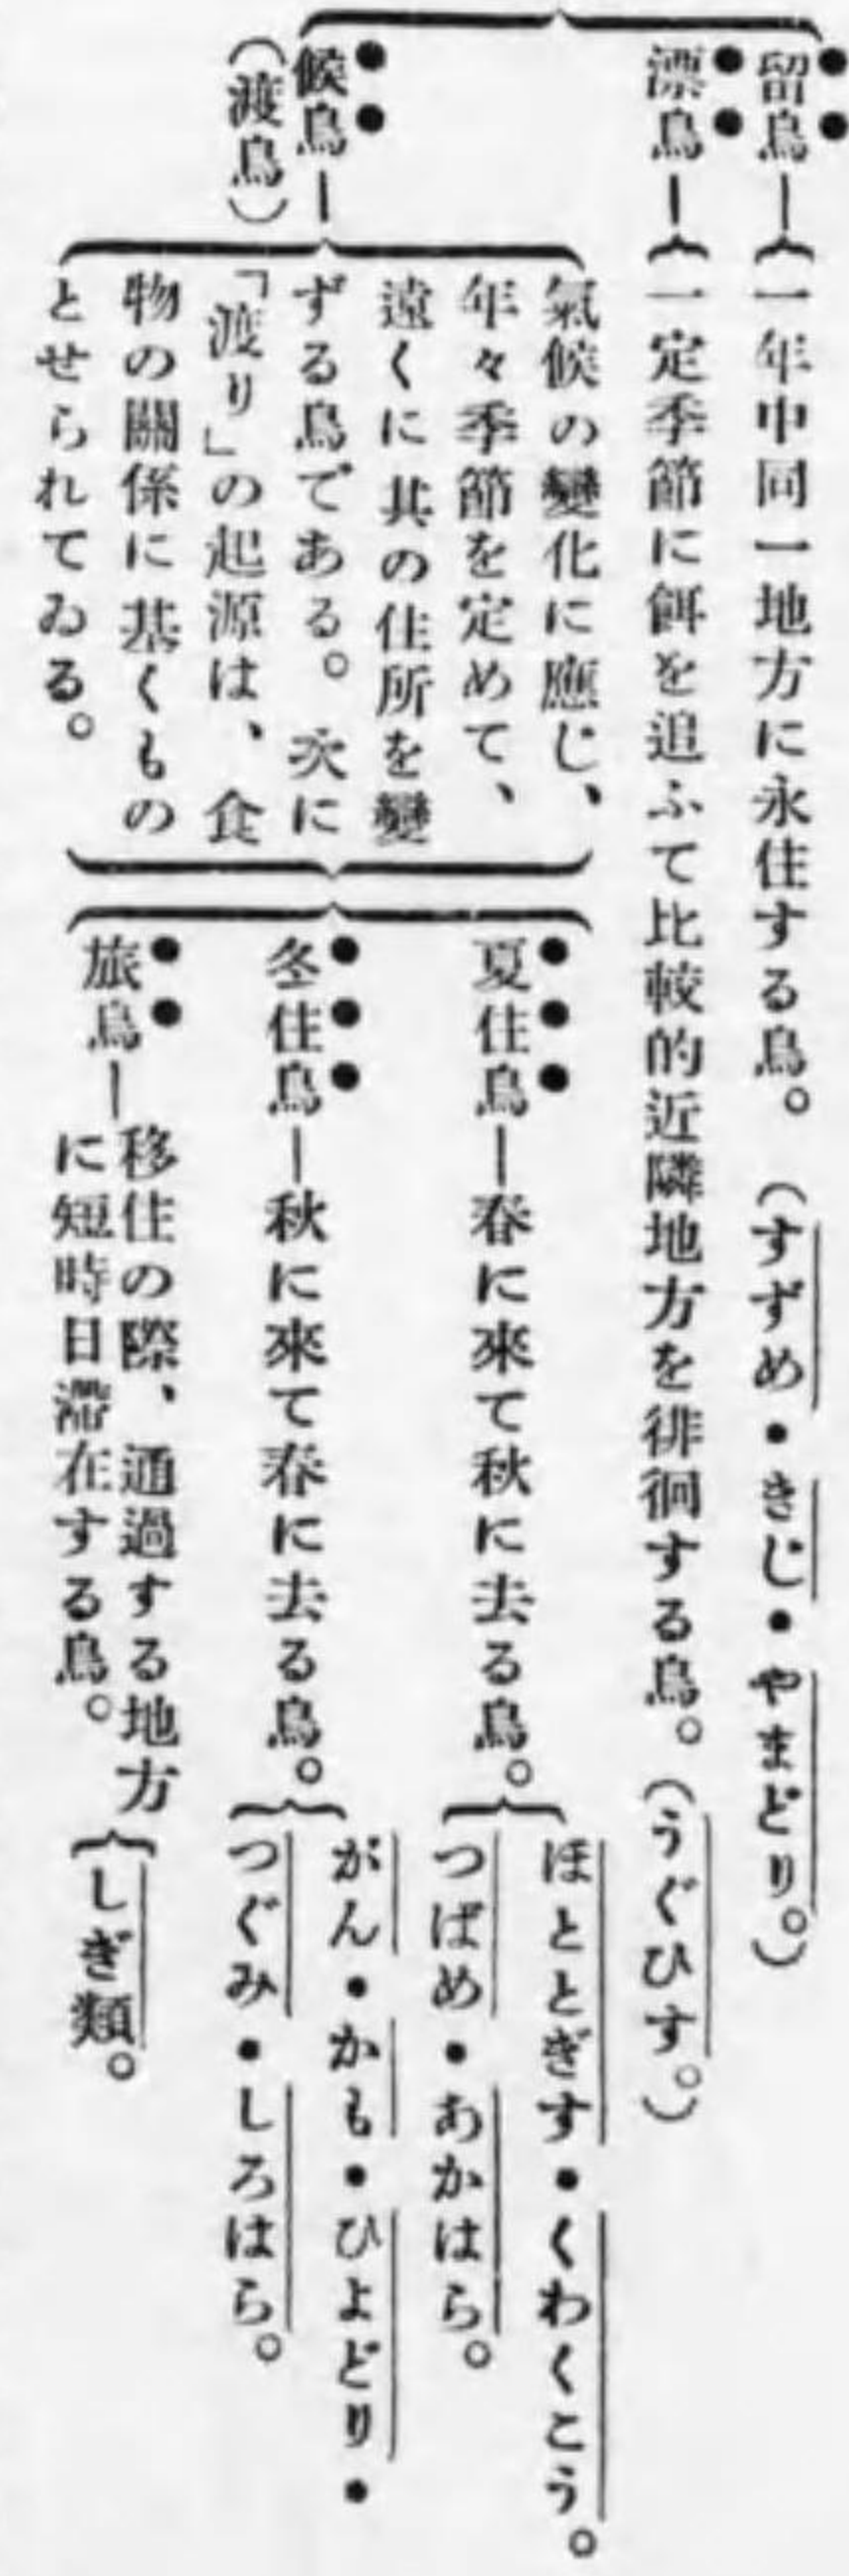 留鳥―一年中同一地方に永住する鳥。(すずめ・きじ・やまどり。)
漂鳥―一定季節に餌を追ふて比較的近隣地方を徘徊する鳥。(うぐひす。)
候鳥―
(渡鳥)
氣候の變化に應じ、
年々季節を定めて、
遠くに其の住所を變
ずる鳥である。次に
「渡り」の起源は、食
物の關係に基くもの
とせられてゐる。
夏住鳥―春に來て秋に去る鳥。
ほととぎす・くわくこう。
つばめ・あかはら。
冬住鳥―秋に來て春に去る鳥。
がん・かも・ひよどり・
つぐみ・しろはら。
旅鳥―
移住の際、通過する地方
に短時日滯在する鳥。
しぎ類。